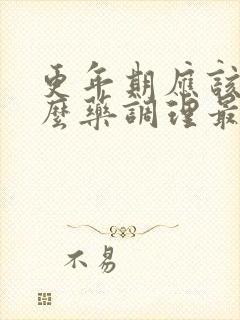 更年期應該
麼藥調理最
不易